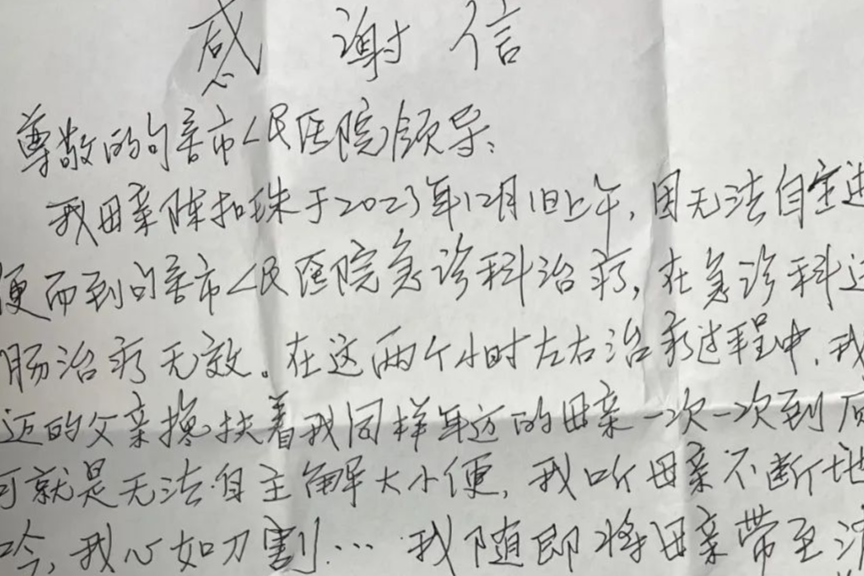 感谢信
尊敬的句容市人民医院领导：
我母亲陈扣珠于2023年12月1日上午，因无法自主
便而到句容市人民医院急诊科治疗，在急诊科
肠治疗无效。在这两个小时左右治疗过程中，我
迈的父亲搀扶着我同样年迈的母亲一次一次到
可就是无法自主解大小便，我听母亲不断地
吟，我心如刀割…我随即将母亲带至